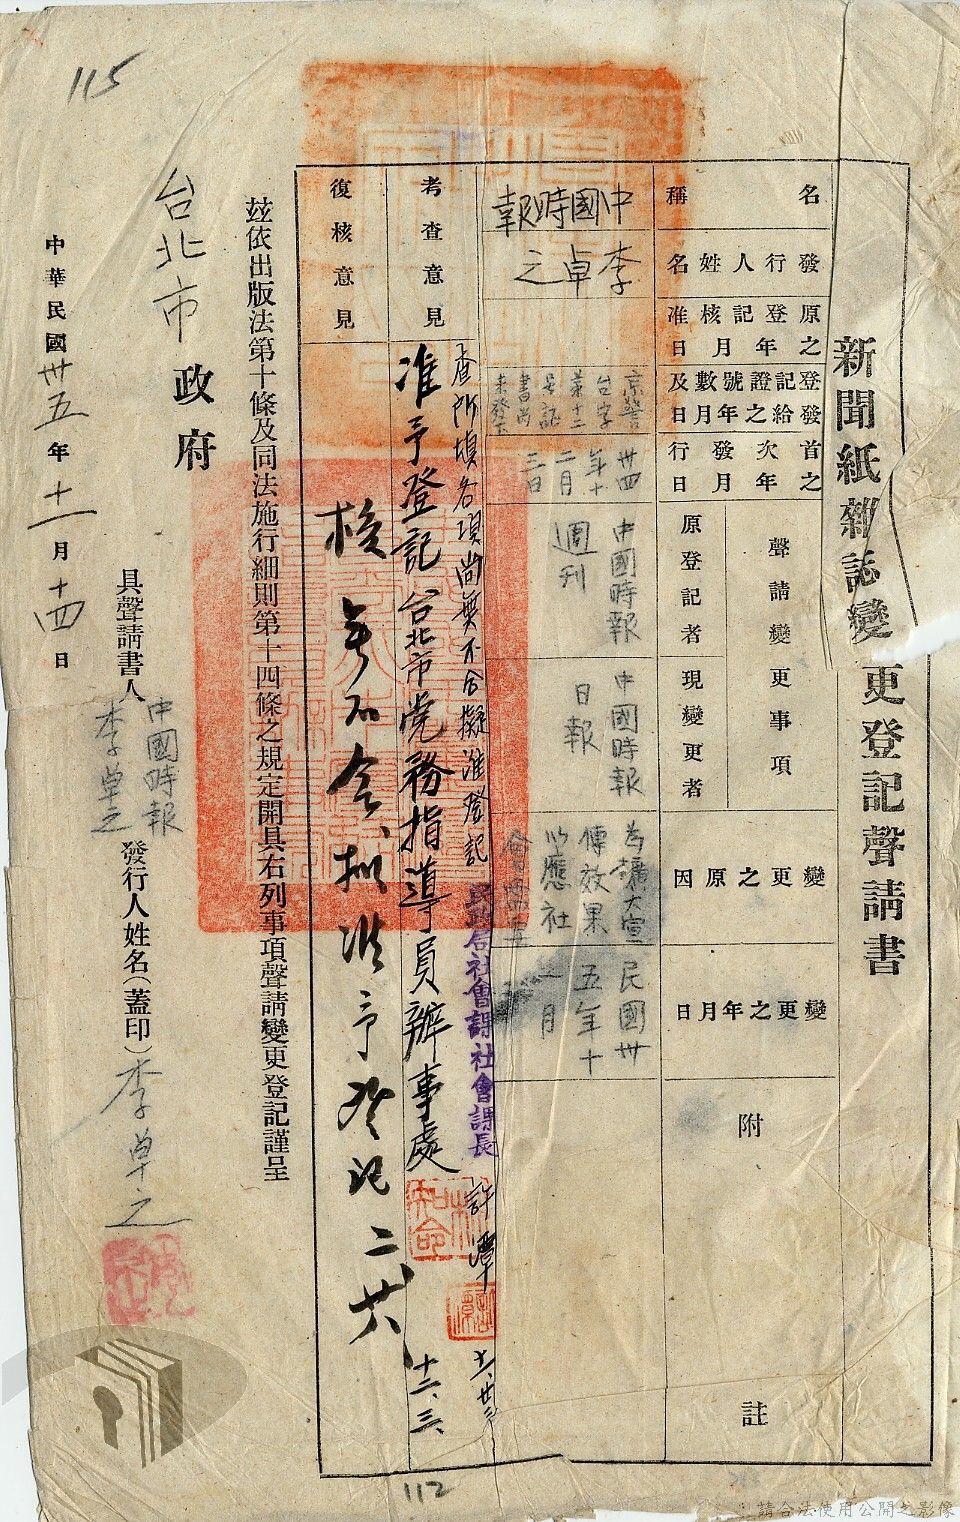 115
新聞紙雜誌變更登記聲請書
名稱
中國時報
發行人姓名
李卓之
原登記核准之年月日
登記證號數及發給之年月日
京警
台字
第十二
号証
書尚
未發下
首次發行之年月日
卅四
年十
二月
三日
聲請變更事項
原登記者
中國時報
週刊
現變更者
中國時報
日報
變更之原因
為擴大宣
傳效果
以應社
會需要
變更之年月日
民國卅
五年十
一月
附註
考查意見
查所填各項尚無不合擬准登記
民政局社會課社會課長
許潭
准予登記
台北市党務指導員辦事處
十二、三、
復核意見
核無不合、擬准予登記
茲依出版法第十條及同法施行細則第十四條之規定開具右列事項聲請變更登記謹呈
台北市政府
具聲請書人
中國時報
李卓之
發行人姓名(蓋印)李卓之
中華民國卅五年十一月十四日
112
請合法使用公開之影像